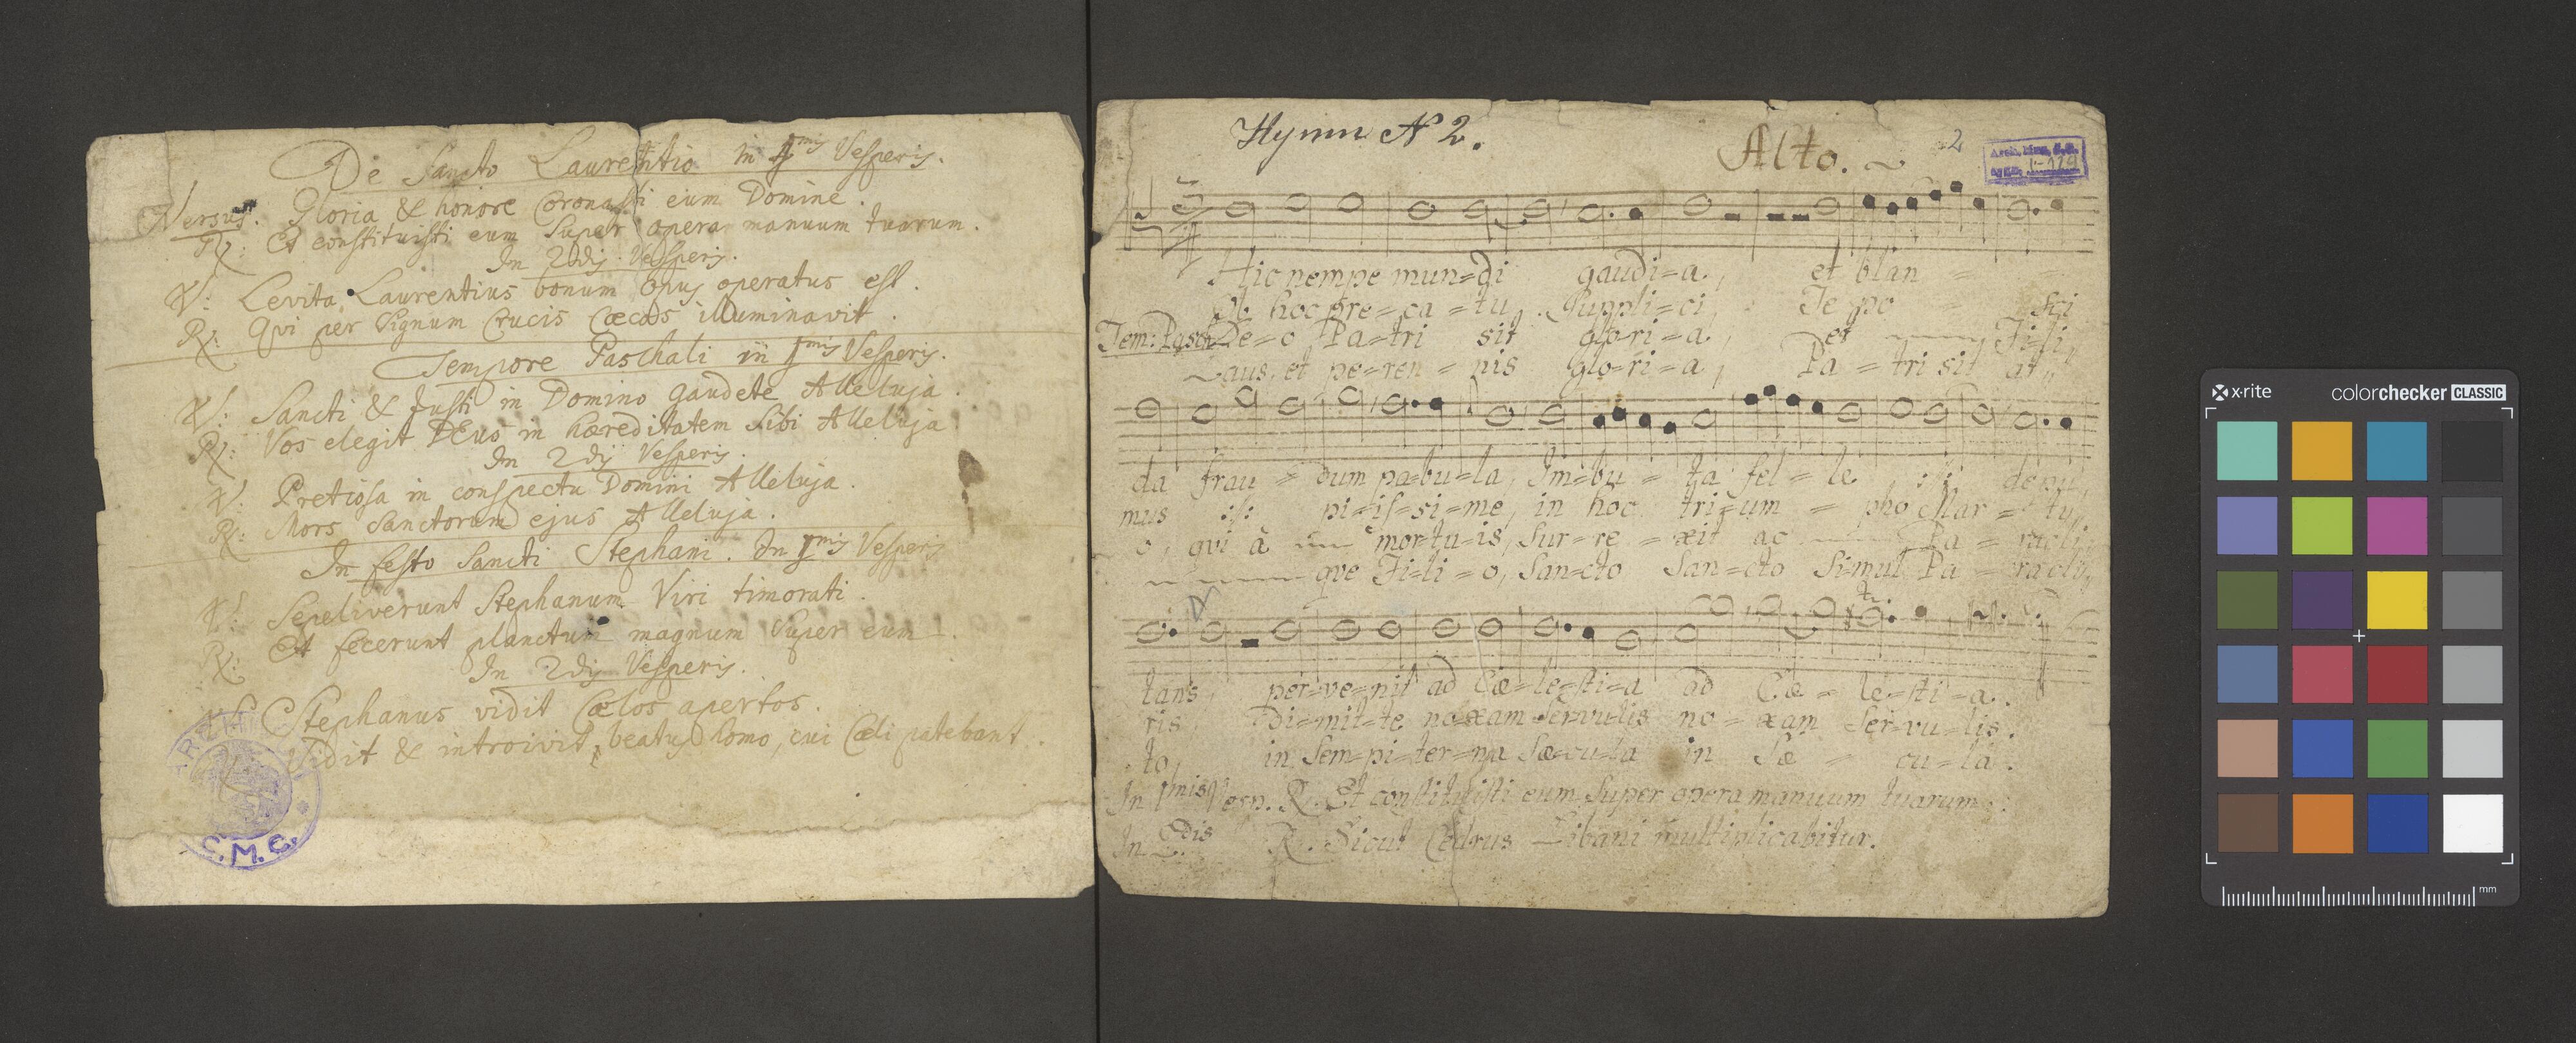 De Sancto Laurentio in 1mis Vesperis.
Versus. Gloria & honore Coronasti eum Domine.
R: Et constituisti eum Super opera manuum tuarum.
In 2dis Vesperis.
V: Levita Laurentius bonum opus operatus est.
R: Qui per Signum Crucis Cœcos illuminavit.
Tempore Paschali in 1mis Vesperis.
V: Sancti & Justi in Domino gaudete Alleluja.
R: Vos elegit DEus in hæreditatem Sibi Alleluja
In 2dis Vesperis.
V: Pretiosa in conspectu Domini Alleluja.
R: Mors Sanctorum ejus Alleluja.
In festo Sancti Stephani. In 1mis Vesperis
V: Sepeliverunt Stephanum Viri timorati.
R: Et fecerunt planctum magnum Super eum.
In 2dis Vesperis.
V: Stephanus vidit Cœlos apertos.
Vidit & introivit, beatus homo, cui Cœli patebant.
C.M.C.
Hymn N 2.
Alto.
2
Hic nempe mun=di gaudi=a, et blan =
Ob hoc pre=ca=tu, Suppli=ci, Te po Sci
Tem: Pasch: De=o Pa=tri sit glo-ri=a, et Fi-li,,
Laus, et pe=ren=nis glo=ri=a, Pa=tri sit at,,
da frau = dum pa=bu=la, Im=bu = ta fel=le :/: depu,,
mus :/: pi=is=si=me, in hoc tri=um = pho Mar = ty,,
o, qui à mor=tu=is, Sur=re = xit ac Pa = racli,,
que Fi=li=o, San=cto San=cto Si=mul Pa = racly,,
tans, per=ve=nit ad Cœ=le=sti=a ad Cœ = le=sti=a.
ris, di=mit=te noxam Servulis no=xam Ser=vu=lis.
to, in Sem=pi=ter=na Sæ=cu=la in Sæ = cu=la.
In 1mis Vesp. R. Et constituisti eum Super opera manuum tuarum.
In 2dis R. Sicut Cedrus Libani multiplicabitur.
x·rite colorchecker CLASSIC
mm